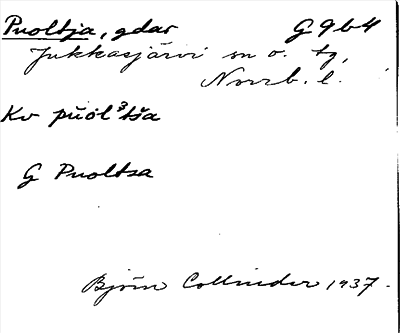 Puoltja, gdar G9b4
Jukkasjärvi sn o. tg,
Norrb. l.
Kv pŭol³tša
G Puoltsa
Björn Collinder 1937.